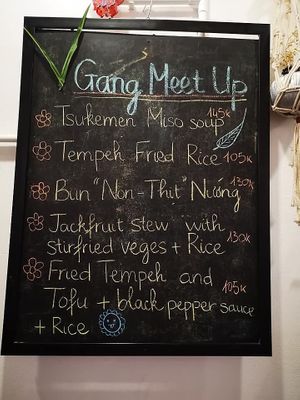 Gang Meet Up
Tsukemen Miso soup 145K
Tempeh Fried Rice 105K
Bun "Non-Thit" Nướng 130K
Jackfruit stew with
stirfried veges + Rice 130K
Fried Tempeh and
Tofu + black pepper sauce 105K
+ Rice